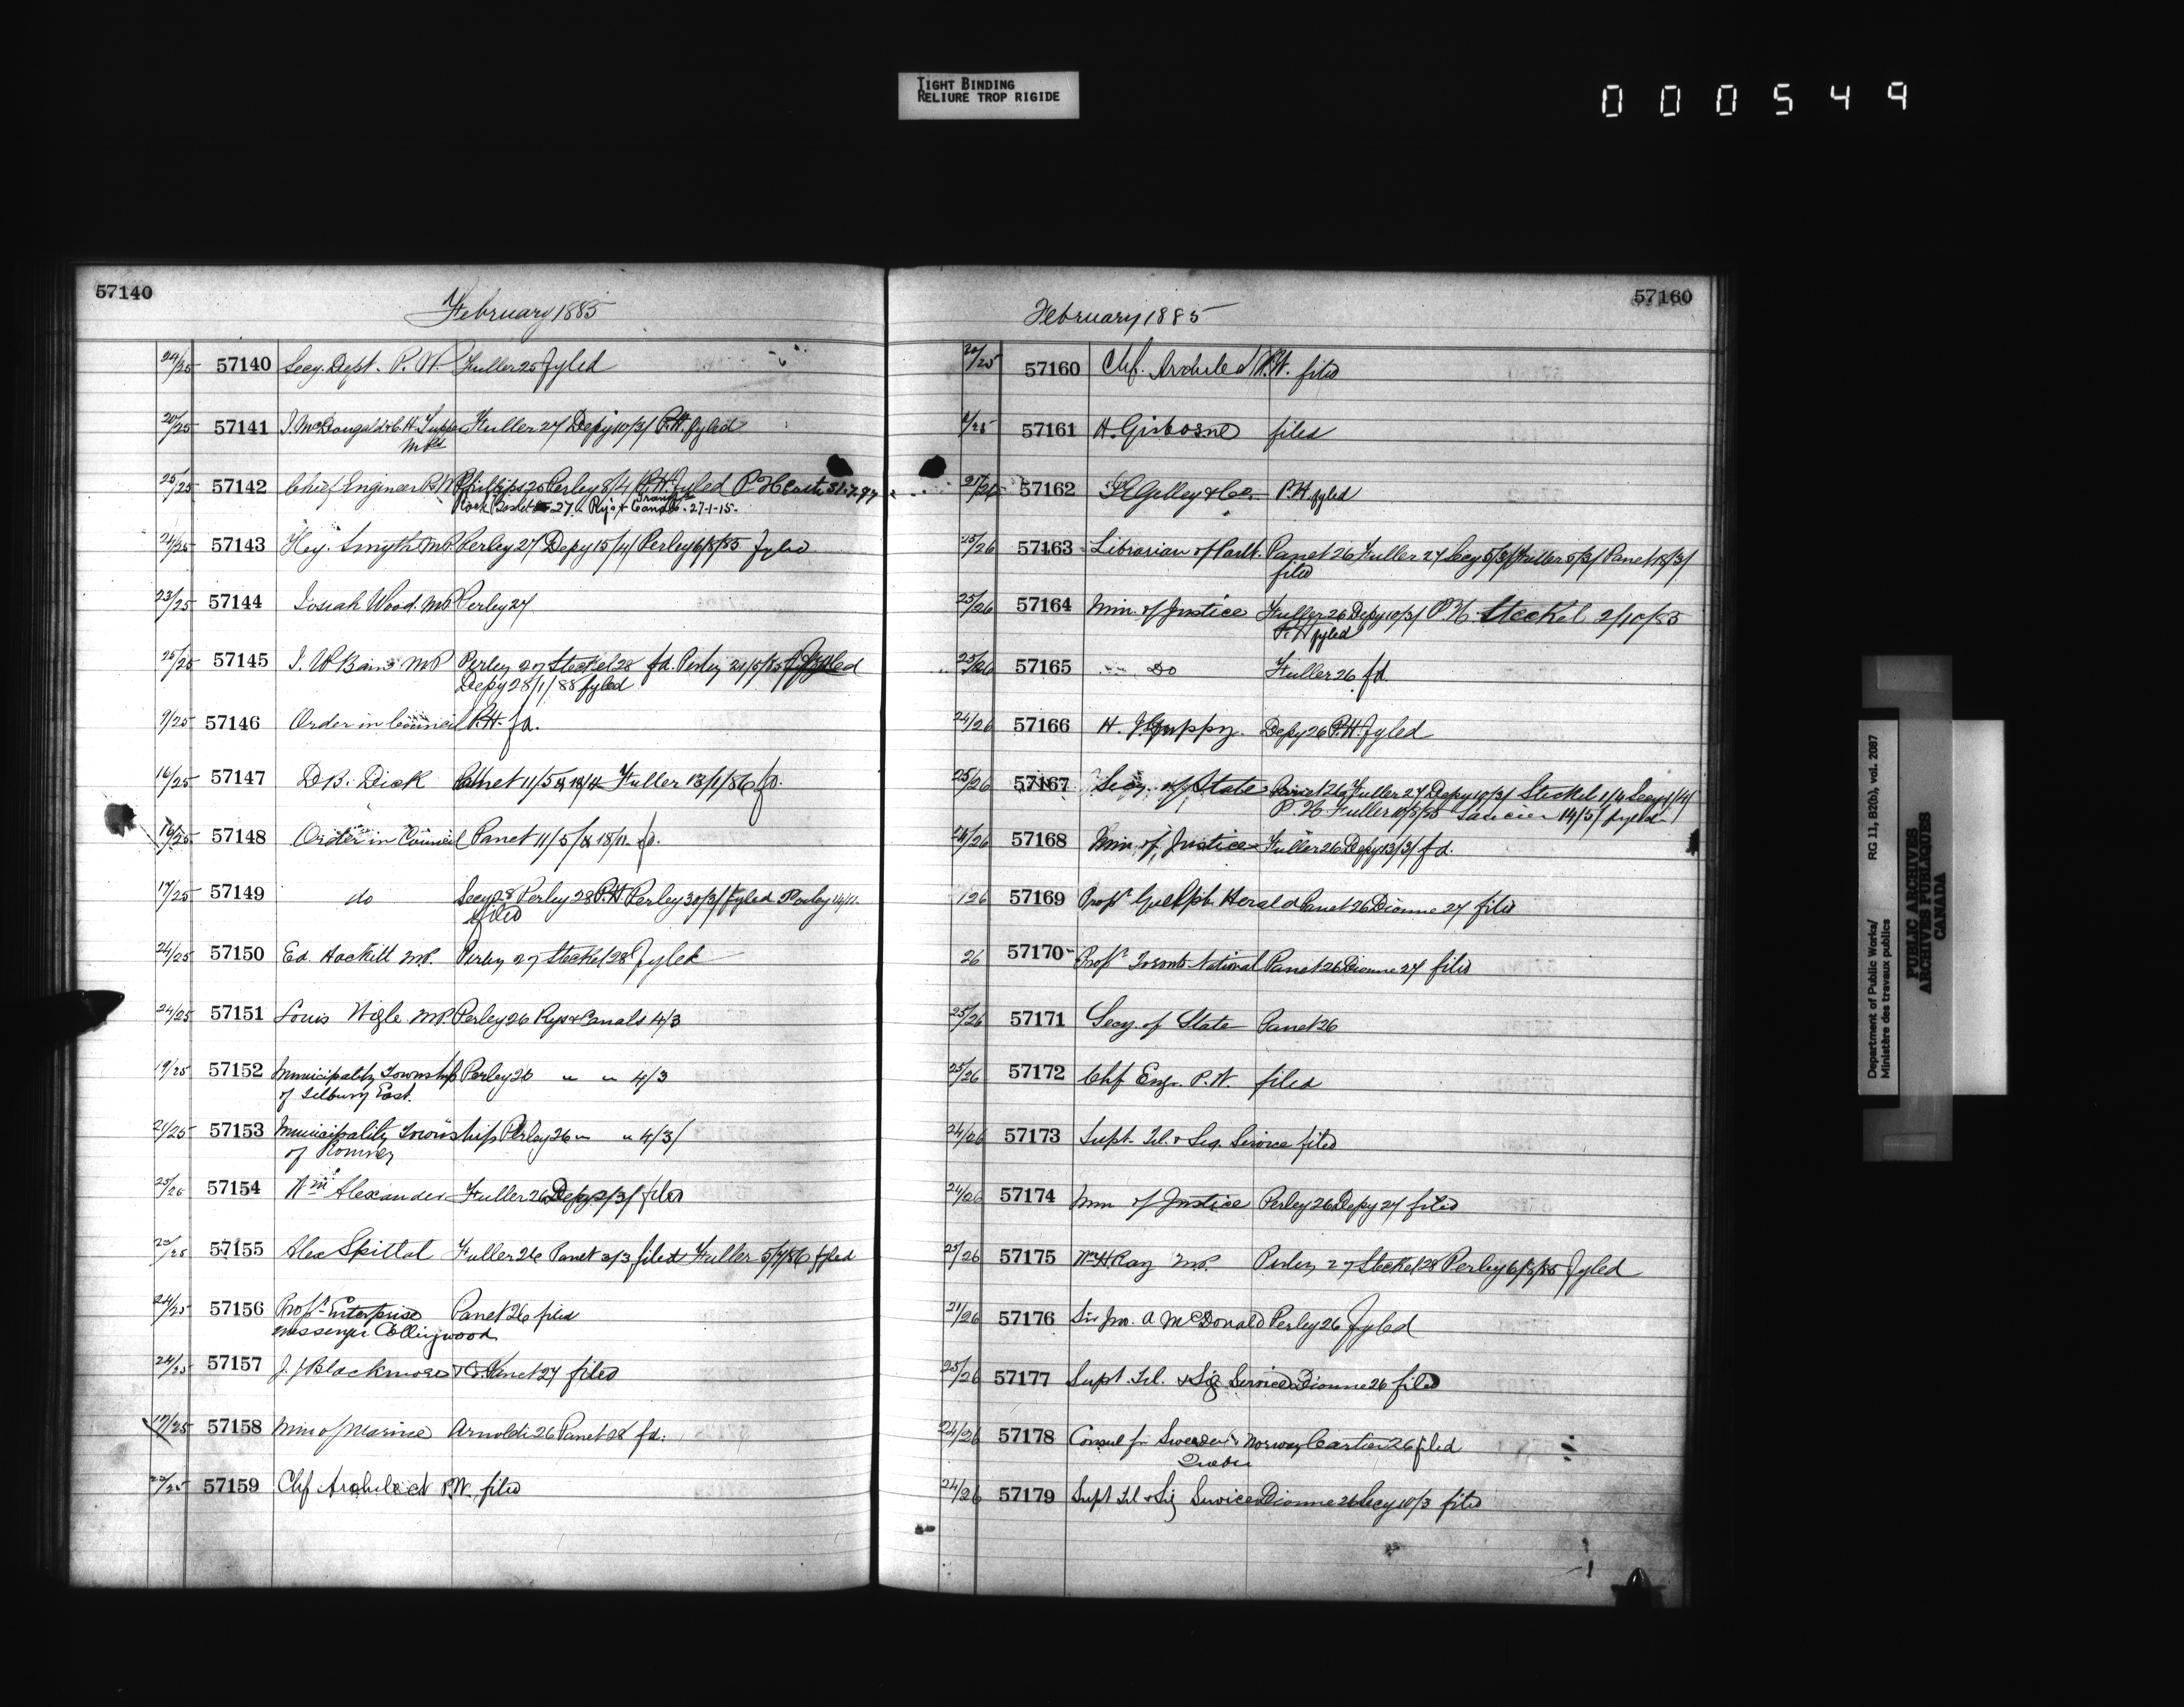 TIGHT BINDING
RELIURE TROP RIGIDE
000549
57140
February 1885
24/25 57140 Secy. Dept. P. W. Fuller 25 fyled
20/25 57141 J. McDougald & C. H. Tupper Fuller 27 Depy 10/3/ P.H. fyled
MPs
25/25 57142 Chief Engineer P.W. Phillips 25 Perley 8/4 P.H. fyled P.H.
Rys & Canals. 27-1-15.
24/25 57143 Hey. Smyth MP. Perley 27 Depy 15/4/ Perley 6/8/85 fyled
23/25 57144 Josiah Wood. MP Perley 27
25/25 57145 J. W. Bain MP Perley 27 Steckel 28 fd. Perley 21/5/85 fyled
Depy 28/1/88 fyled
9/25 57146 Order in Council P.H. fd.
16/25 57147 D.B. Dick Panet 11/5 Fuller 13/1/86 fd.
16/25 57148 Order in Council Panet 11/5/ & 18/11. fd.
17/25 57149 do Secy 28 Perley 28 P.H. Perley 30/3/ fyled Perley 14/11.
filed
24/25 57150 Ed. Hackett MP. Perley 27 Steckel 28 fyled
24/25 57151 Louis Wigle MP. Perley 26 Rys & Canals 4/3
19/25 57152 Municipality Township Perley 26 " " 4/3
of Tilbury East.
21/25 57153 Municipality Township Perley 26 " " 4/3/
of Romney
25/26 57154 Wm Alexander Fuller 26 Depy 2/3/ filed
57155 Alex Spittal Fuller 26 Panet 3/3 filed Fuller 5/7/86 fyled
24/25 57156 Propr. Enterprise Panet 26 filed
Messenger Collingwood
24/25 57157 J. J. Blackmore & Co. Panet 27 filed
17/25 57158 Min of Marine Arnoldi 26 Panet 28 fd.
57159 Chf Architect P.W. filed
57160
February 1885
57160 Chf. Architect P.W. filed
57161 H. Gisborne filed
57162 Gelley & Co. P.H. fyled
25/26 57163 Librarian of Parlt. Panet 26 Fuller 27 Secy 5/3/ Fuller 5/3/ Panet 18/3/
filed
25/26 57164 Min. of Justice Fuller 26 Depy 10/3/ P.H. Steckel 2/10/85
P.H. fyled
25/26 57165 Do Fuller 26 fd.
24/26 57166 H. J. Guppy. Depy 26 P.H. fyled
25/26 57167 Secy. of State Panet 26 Fuller 27 Depy 10/3/ Steckel 1/4 Secy 1/4/
P.H. Fuller 10/8/85 14/5/ fyled
24/26 57168 Min. of Justice Fuller 26 Depy 13/3/ fd.
26 57169 Propr. Guelph Herald Panet 26 Dionne 27 filed
26 57170 Propr. Toronto National Panet 26 Dionne 27 filed
25/26 57171 Secy. of State Panet 26
25/26 57172 Chf Engr. P.W. filed
24/26 57173 Supt. Tel. & Sig. Service filed
24/26 57174 Min of Justice Perley 26 Depy 27 filed
25/26 57175 Wm H. Ray MP. Perley 27 Steckel 28 Perley 6/8/85 fyled
21/26 57176 Sir Jno. A McDonald Perley 26 fyled
25/26 57177 Supt. Tel. & Sig Service Dionne 26 filed
24/26 57178 Consul for Sweden & Norway Cartier 26 filed
Quebec
24/26 57179 Supt Tel & Sig Service Dionne 26 Secy 10/3 filed
Department of Public Works/ RG 11, B2(b), vol. 2087
Ministère des travaux publics
PUBLIC ARCHIVES
ARCHIVES PUBLIQUES
CANADA